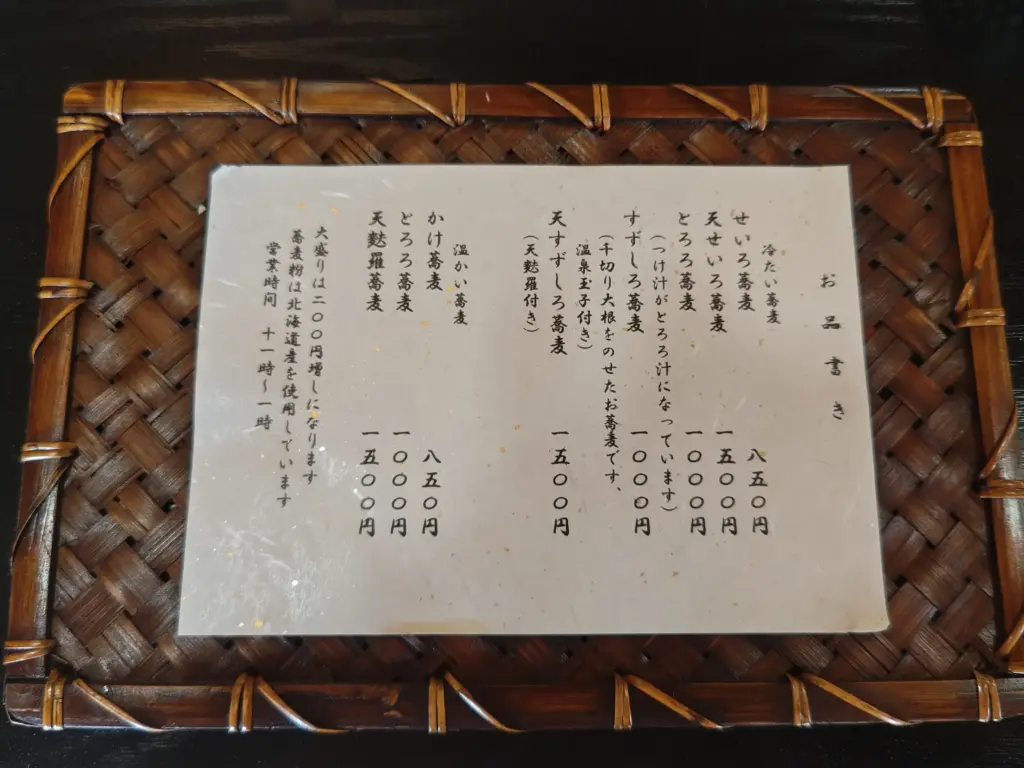 お品書き
冷たい蕎麦
せいろ蕎麦 八五〇円
天せいろ蕎麦 一五〇〇円
とろろ蕎麦 一〇〇〇円
(つけ汁がとろろ汁になっています)
すずしろ蕎麦 一〇〇〇円
(千切り大根をのせたお蕎麦です、
温泉玉子付き)
天すずしろ蕎麦 一五〇〇円
(天麩羅付き)
温かい蕎麦
かけ蕎麦 八五〇円
とろろ蕎麦 一〇〇〇円
天麩羅蕎麦 一五〇〇円
大盛りは二〇〇円増しになります
蕎麦粉は北海道産を使用しています
営業時間 十一時〜一時